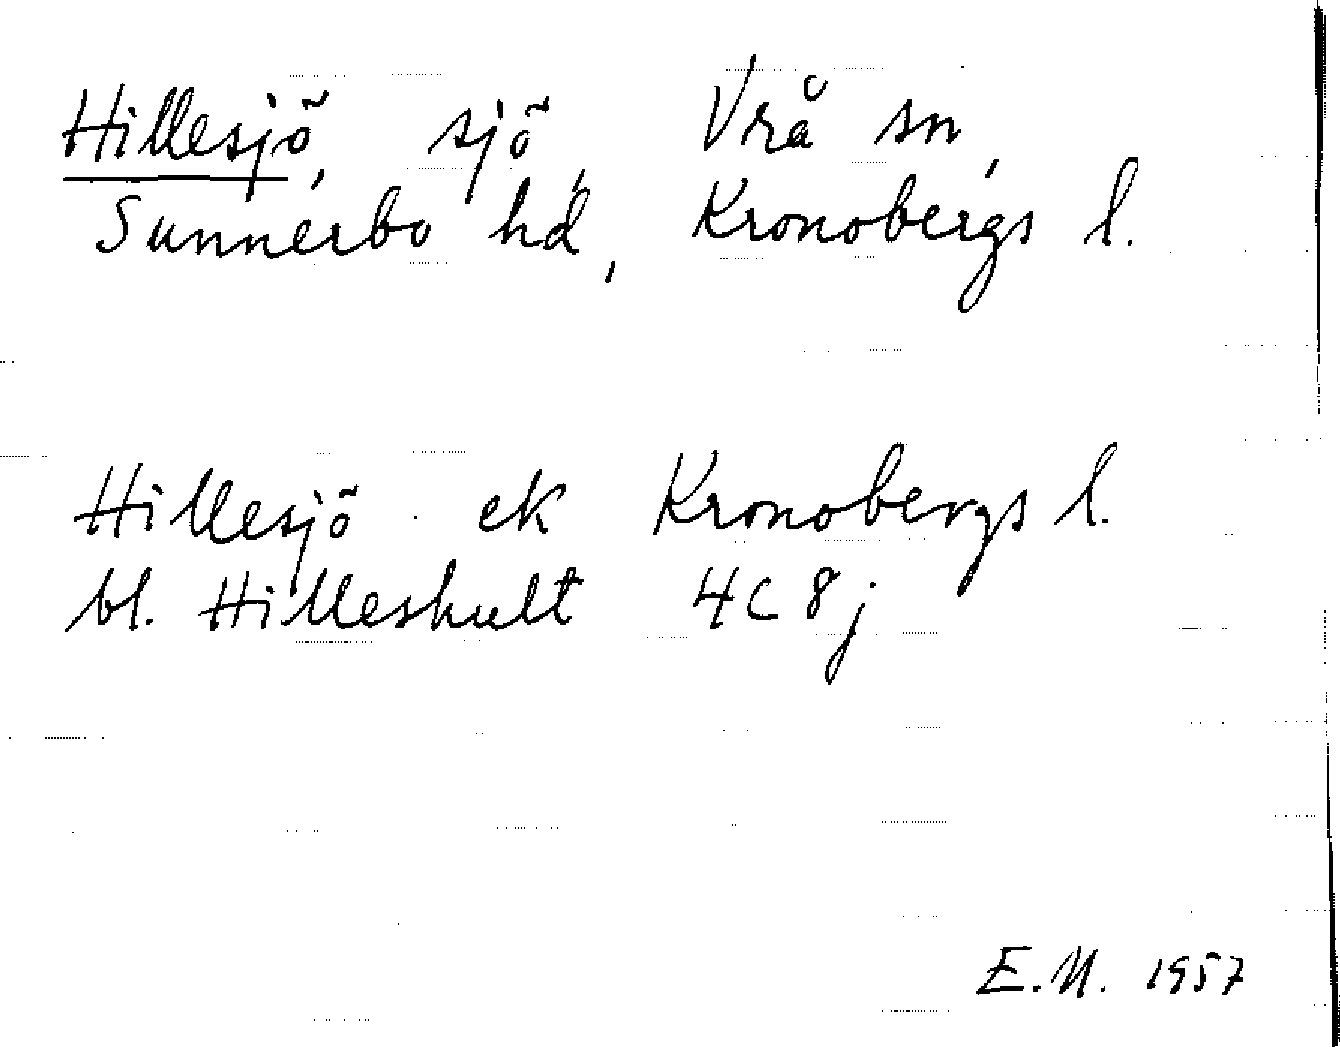 Hillesjö, sjö, Vrå sn,
Sunnerbo hd, Kronobergs l.
Hillesjö ek Kronobergs l.
bl. Hilleshult 4C 8j
E.M. 1957